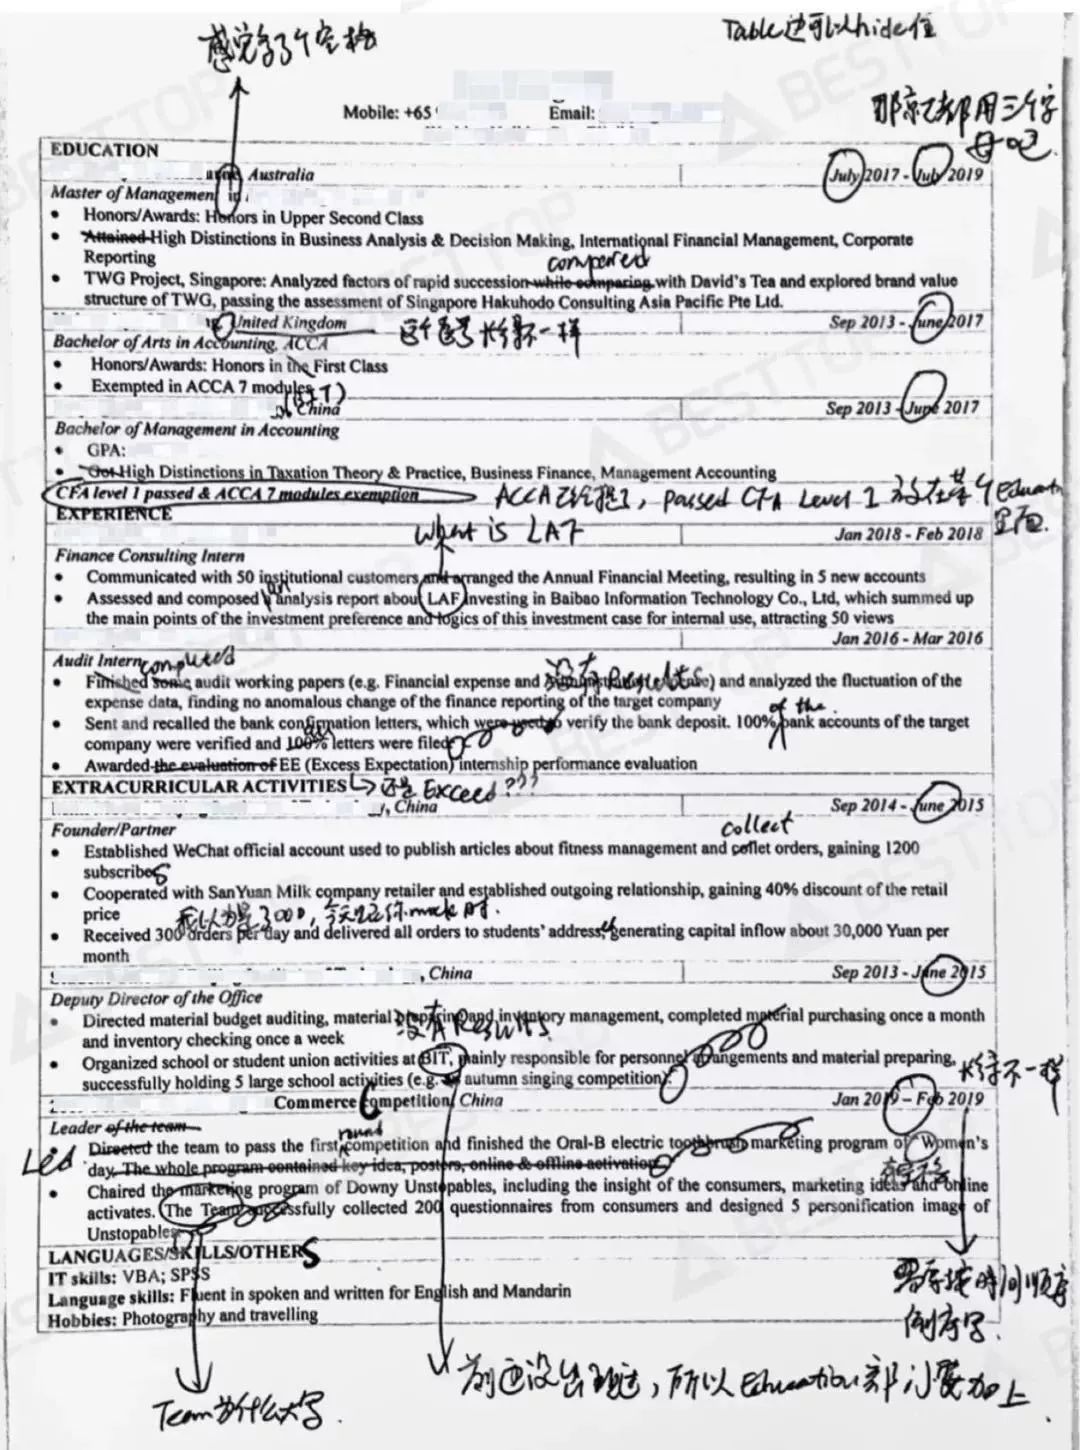 感觉多了个空格
Table边可以hide住
Mobile: +65
Email:
那京都用三个字
母吧
EDUCATION
Australia
July 2017 - July 2019
Master of Management in
Honors/Awards: Honors in Upper Second Class
Attained High Distinctions in Business Analysis & Decision Making, International Financial Management, Corporate
Reporting
compared
TWG Project, Singapore: Analyzed factors of rapid succession while comparing with David's Tea and explored brand value
structure of TWG, passing the assessment of Singapore Hakuhodo Consulting Asia Pacific Pte Ltd.
United Kingdom
这个逗号长得不一样
Sep 2013 - June 2017
Bachelor of Arts in Accounting, ACCA
Honors/Awards: Honors in the First Class
Exempted in ACCA 7 modules
(BIT)
China
Sep 2013 - June 2017
Bachelor of Management in Accounting
GPA:
Got High Distinctions in Taxation Theory & Practice, Business Finance, Management Accounting
CFA level 1 passed & ACCA 7 modules exemption
ACCA已经提了, passed CFA Level 1 放在某个Education
里面.
EXPERIENCE
What is LAF
Jan 2018 - Feb 2018
Finance Consulting Intern
Communicated with 50 institutional customers and arranged the Annual Financial Meeting, resulting in 5 new accounts
an
Assessed and composed analysis report about LAF investing in Baibao Information Technology Co., Ltd, which summed up
the main points of the investment preference and logics of this investment case for internal use, attracting 50 views
Jan 2016 - Mar 2016
Audit Intern
completed
没有Results
Finished some audit working papers (e.g. Financial expense and ) and analyzed the fluctuation of the
expense data, finding no anomalous change of the finance reporting of the target company
of the
Sent and recalled the bank confirmation letters, which were used to verify the bank deposit. 100% bank accounts of the target
all
company were verified and 100% letters were filed
Awarded the evaluation of EE (Excess Expectation) internship performance evaluation
EXTRACURRICULAR ACTIVITIES
还是 Exceed???
, China
Sep 2014 - June 2015
Founder/Partner
collect
Established WeChat official account used to publish articles about fitness management and collet orders, gaining 1200
subscribes
Cooperated with SanYuan Milk company retailer and established outgoing relationship, gaining 40% discount of the retail
price
我以为是3000, 今天给你mock时.
Received 300 orders per day and delivered all orders to students' address, generating capital inflow about 30,000 Yuan per
month
, China
Sep 2013 - June 2015
Deputy Director of the Office
没有Results
Directed material budget auditing, material preparing and inventory management, completed material purchasing once a month
and inventory checking once a week
Organized school or student union activities at BIT, mainly responsible for personnel arrangements and material preparing,
successfully holding 5 large school activities (e.g. autumn singing competition)
长得不一样
Commerce Competition, China
Jan 2019 – Feb 2019
Leader of the team
round
Led
Directed the team to pass the first competition and finished the Oral-B electric toothbrush marketing program of Women's
day. The whole program contained key idea, posters, online & offline activation
Chaired the marketing program of Downy Unstopables, including the insight of the consumers, marketing ideas and online
activates. The Team successfully collected 200 questionnaires from consumers and designed 5 personification image of
Unstopables
LANGUAGES/SKILLS/OTHERS
IT skills: VBA; SPSS
Language skills: Fluent in spoken and written for English and Mandarin
Hobbies: Photography and travelling
时间顺序
倒序写.
前面没出现过, 所以Education部门要加上
Team为什么大写.
BESTTOP